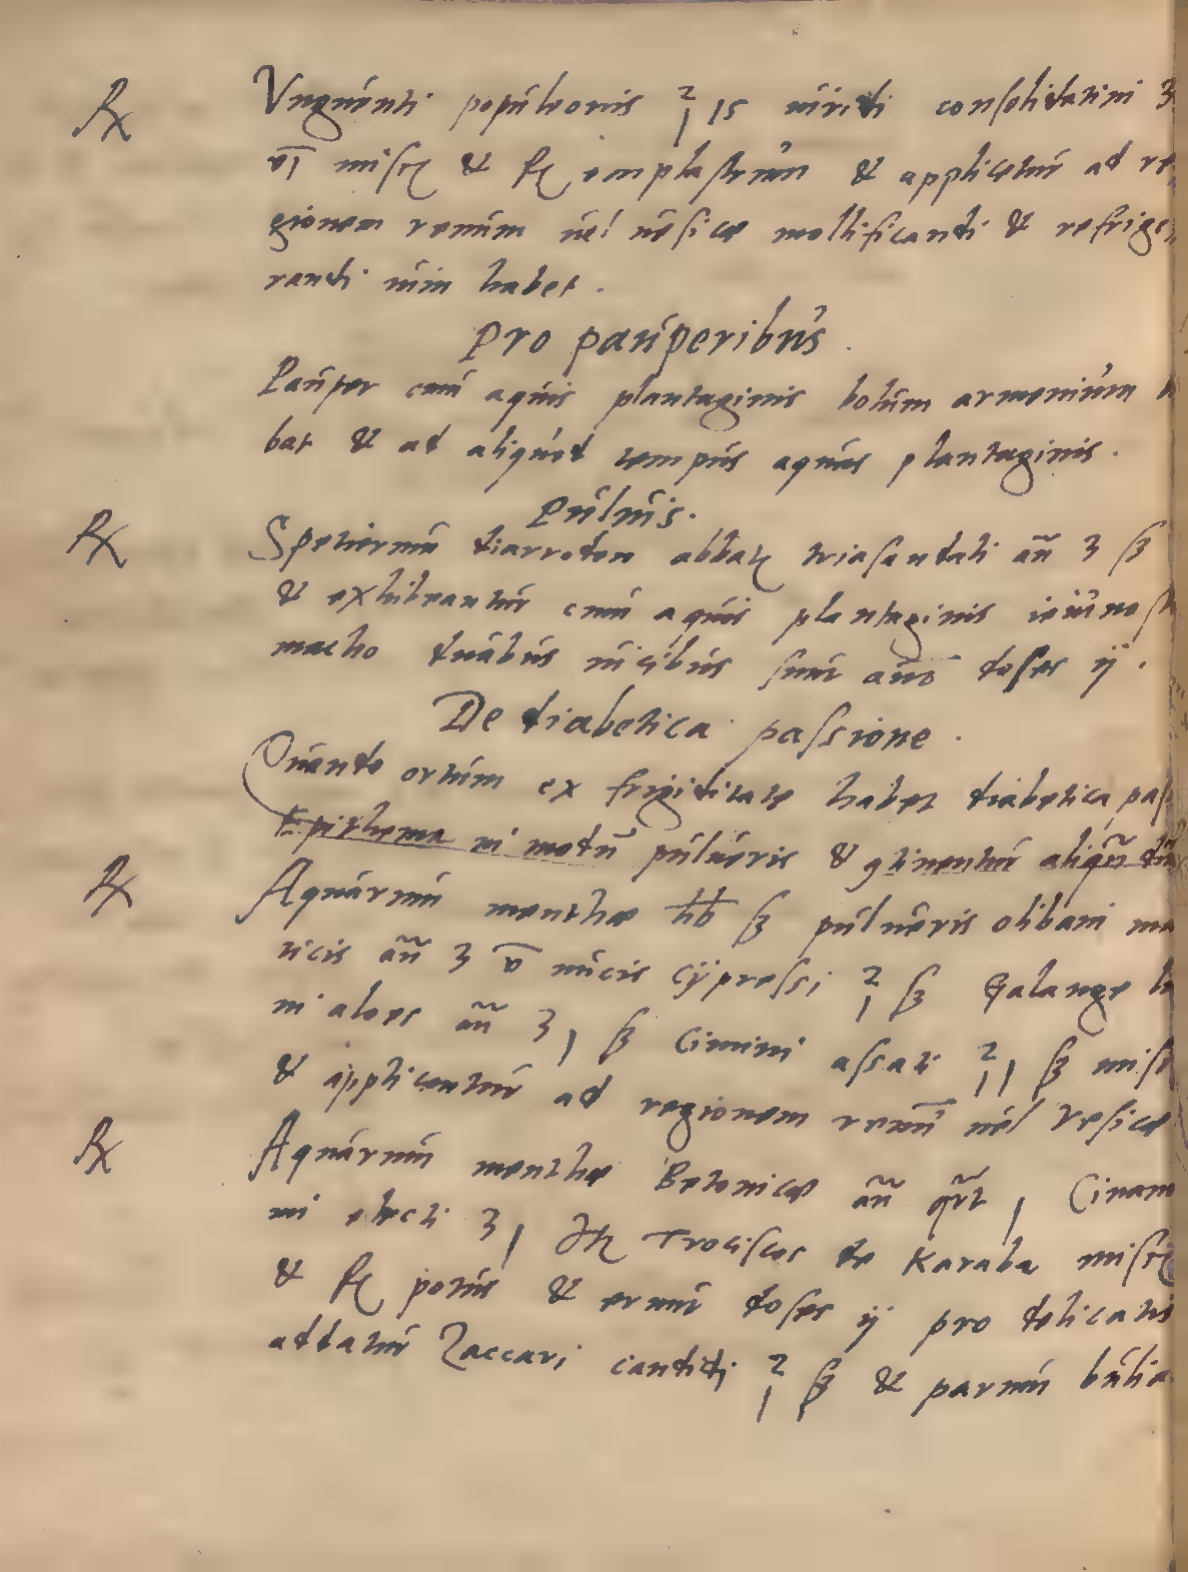 ℞ Vnguenti populeonis ℥ is uiridi consolidatiui ʒ
vi misc & f emplastrum & applicetur ad re
gionem renum uel uesicæ mollificandi & refrige
randi uim habet .
Pro pauperibus .
Pauper cum aquis plantaginis bolum armenium bi
bat & ad aliquod tempus aquas plantaginis .
Puluis .
℞ Spetierum diarrodon abbat triasandali añ ʒ ß
& exhibeantur cum aquis plantaginis ieiuno sto
macho duabus uicibus sunt doses ij .
De diabetica passione .
Quando ortum ex frigiditate habet diabetica pas
Epithema in modũ pulueris & 9tineantur aliqũ
℞ Aquarum menthæ lib ß pulueris olibani ma
ticis añ ʒ v nucis cypressi ℥ i ß Galange li
ni aloes añ ʒ i ß Cimini assati ℥ ii ß misc
& applicentur ad regionem renũ uel Vesicæ
℞ Aquarum menthæ Betonicæ añ qrt i Cinamo
mi electi ʒ i Trociscos de Karabæ misc
& f potus & erunt doses ij pro delicatis
addatur Zaccari candidi ℥ i ß & parum bulia